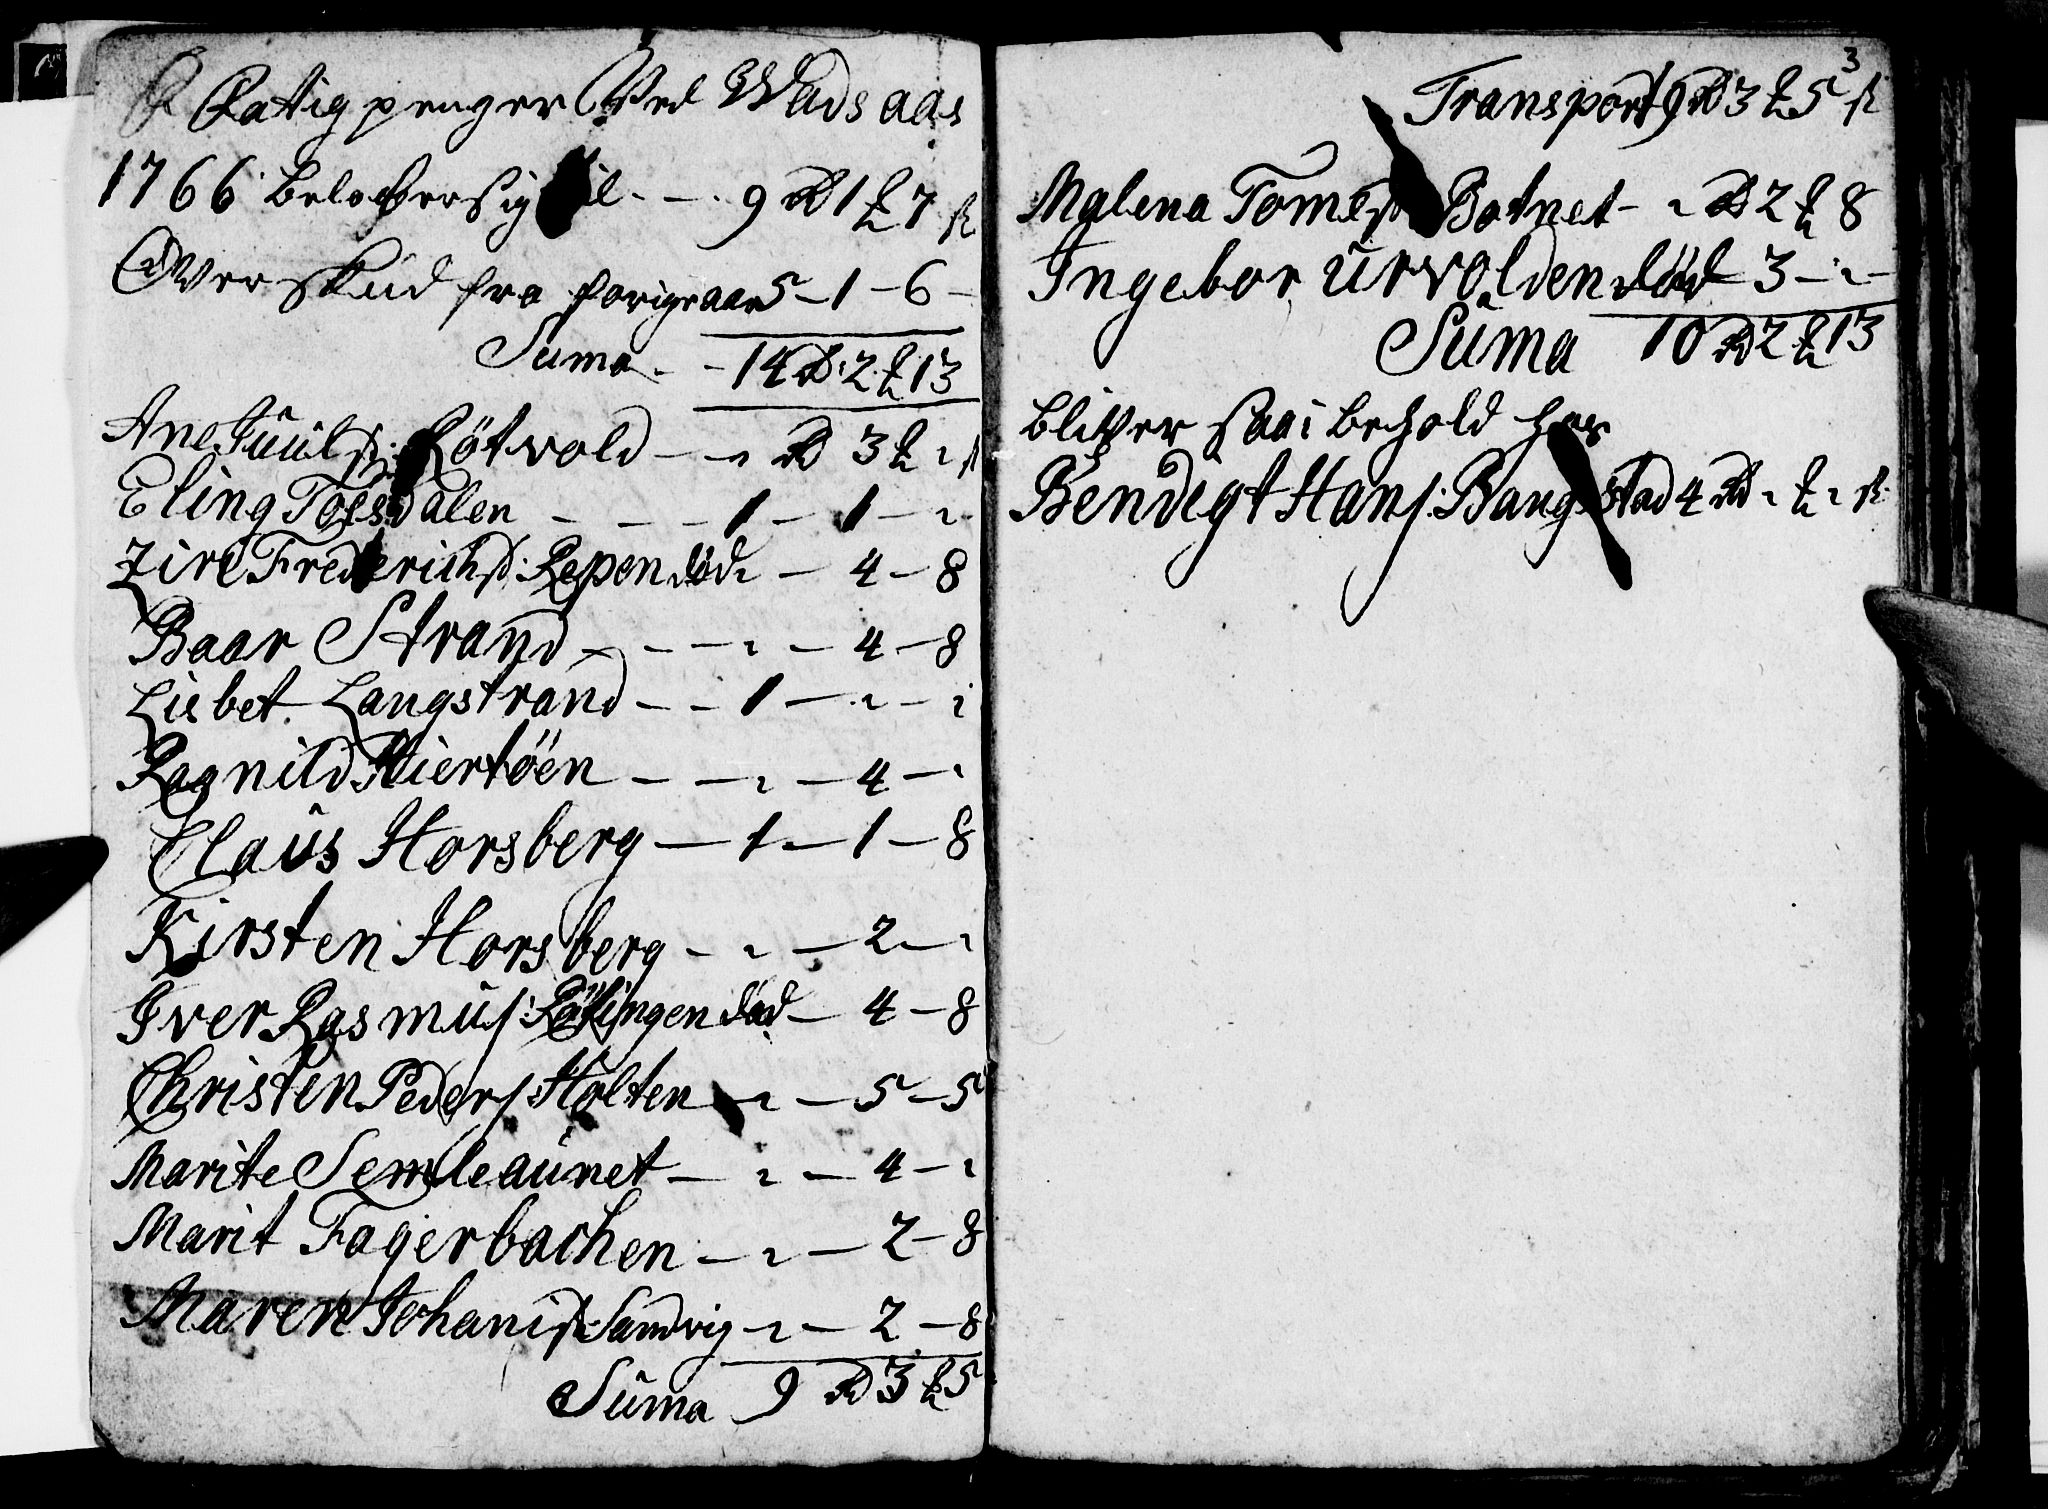 Fatig penger Ved Wadsaas
1766 belober sig til - - 9 Rd 1 ℔ 7 ß
Overskud fra forige aar 5 - 1 - 6 -
Suma - - 14 Rd 2 ℔ 13
Ane Juulsd: Rötvold - - " Rd 3 ℔ " ß
Eling Tossdalen - - - 1 - 1 - "
Zire Fredrichsd: Repen död " - 4 - 8
Baar Strand - - - " - 4 - 8
Lisbet Langstrand - - 1 - " - "
Ragnild Hiertöen - - " - 4 - "
Claus Horsberg - 1 - 1 - 8
Kirsten Horsberg - " - 2 - "
Iver Rasmus: död - 4 - 8
Christen Peders: Holten - " - 5 - 5
Marite Semleaunet - " - 4 - "
Marit Fagerbachen - " - 2 - 8
Maren Johanisd: Sandvig - " - 2 - 8
Suma 9 Rd 3 ℔ 5
3
Transport 9 Rd 3 ℔ 5 ß
Malena Tomesd: Botnet - " Rd 2 ℔ 8
Ingebor Urvolden död 3 - " -
Suma 10 Rd 2 ℔ 13
bliver saa i behold hos
Bendigt Hans: Baugstad 4 Rd " ℔ " ß